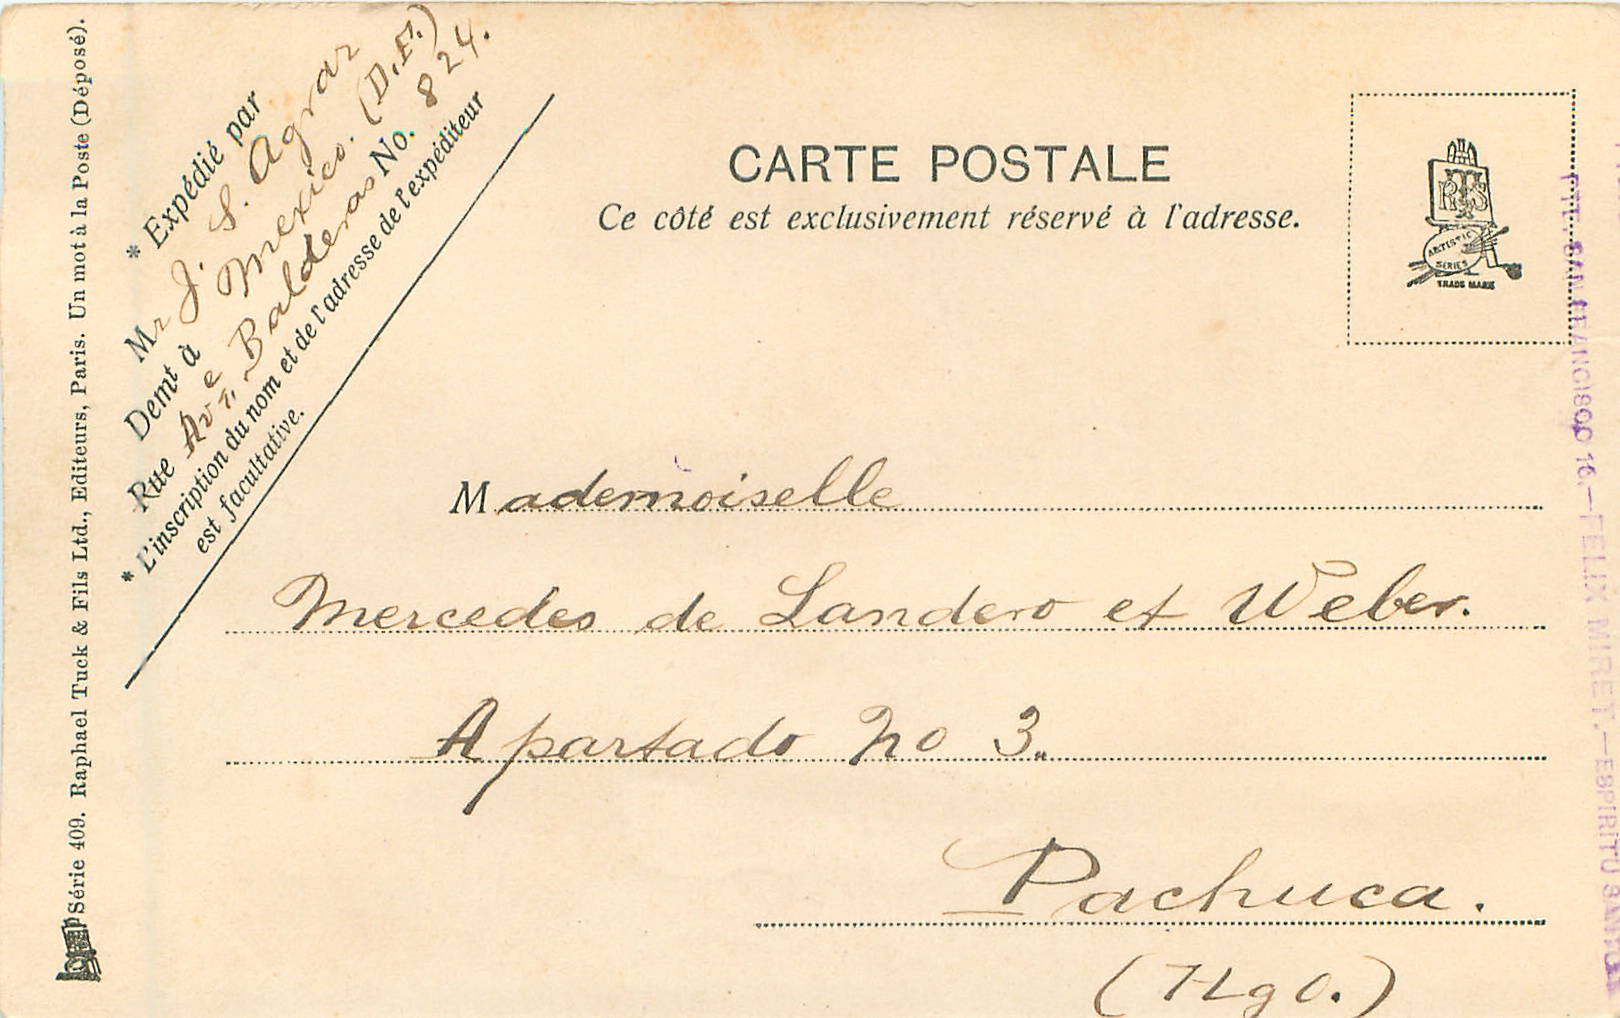 * Expédié par
Mr J. S. Agraz
Demt à Mexico. (D.F.)
Rue Ave. Balderas No. 824.
* L'inscription du nom et de l'adresse de l'expéditeur
est facultative.
CARTE POSTALE
Ce côté est exclusivement réservé à l'adresse.
RTS
ARTISTIC
SERIES
TRADE MARK
Mademoiselle
Mercedes de Landero et Weber.
Apartado No 3.
Pachuca.
(Hgo.)
Série 409. Raphael Tuck & Fils Ltd., Editeurs, Paris. Un mot à la Poste (Déposé).
SAN FRANCISCO 16.—FELIX MIRET.—ESPIRITU SANTO